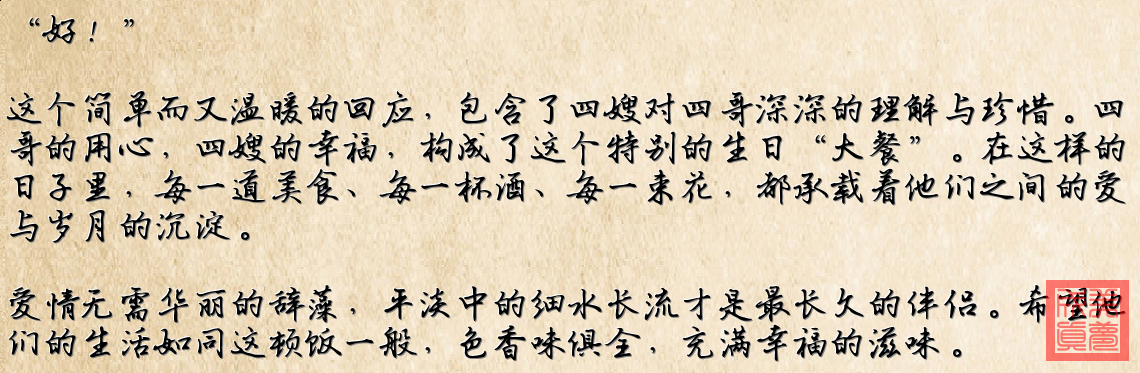 “好！”
这个简单而又温暖的回应，包含了四嫂对四哥深深的理解与珍惜。四
哥的用心，四嫂的幸福，构成了这个特别的生日“大餐”。在这样的
日子里，每一道美食、每一杯酒、每一束花，都承载着他们之间的爱
与岁月的沉淀。
爱情无需华丽的辞藻，平淡中的细水长流才是最长久的伴侣。希望他
们的生活如同这顿饭一般，色香味俱全，充满幸福的滋味。